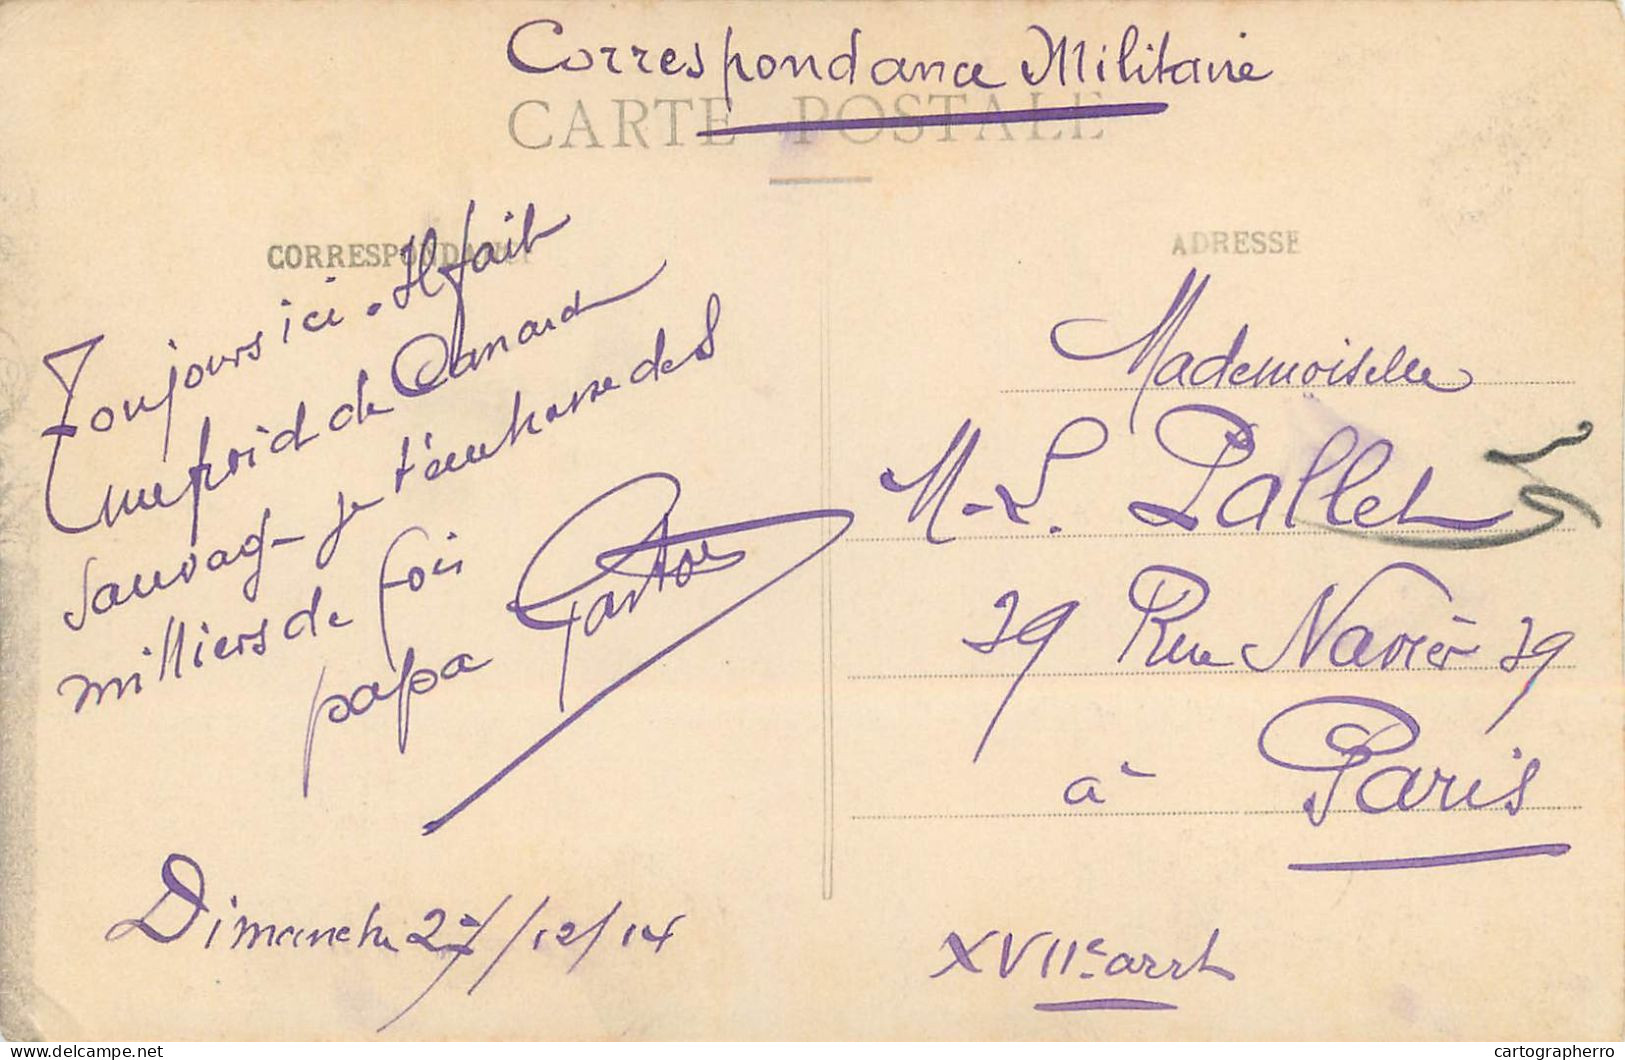 Correspondance Militaire
CARTE POSTALE
CORRESPONDANCE
Toujours ici. Il fait
un froid de Canard
sauvage je t'embrasse des
milliers de fois
papa Gaston
Dimanche 27/12/14
ADRESSE
Mademoiselle
M.-L. Pallet
39 Rue Navier 39
à Paris
XVIIe arrt
delcampe.net
cartographerro